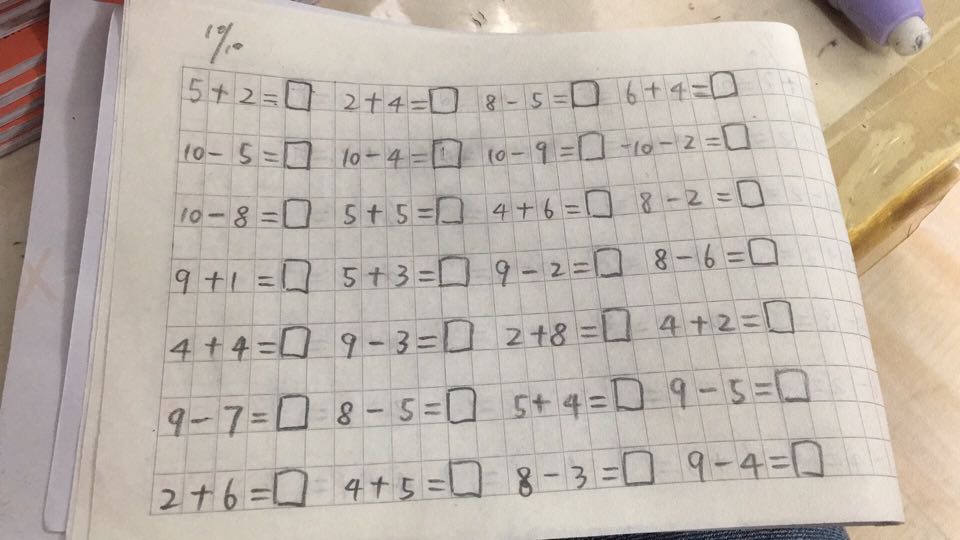 10/10
5+2=□ 2+4=□ 8-5=□ 6+4=□
10-5=□ 10-4=□ 10-9=□ 10-2=□
10-8=□ 5+5=□ 4+6=□ 8-2=□
9+1=□ 5+3=□ 9-2=□ 8-6=□
4+4=□ 9-3=□ 2+8=□ 4+2=□
9-7=□ 8-5=□ 5+4=□ 9-5=□
2+6=□ 4+5=□ 8-3=□ 9-4=□